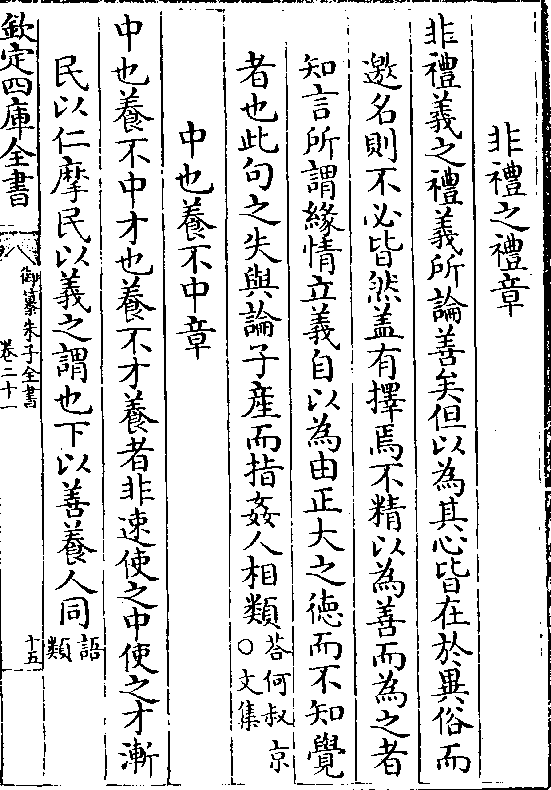 非禮之禮章
非禮義之禮義所論善矣但以為其心皆在於異俗而
邀名則不必皆然盖有擇焉不精以為善而為之者
知言所謂緣情立義自以為由正大之徳而不知覺
者也此句之失與論子產而指姦人相類答何叔京○文集
中也養不中章
中也養不中才也養不才養者非速使之中使之才漸
民以仁摩民以義之謂也下以善養人同語類
欽定四庫全書
御纂朱子全書
卷二十一
十五